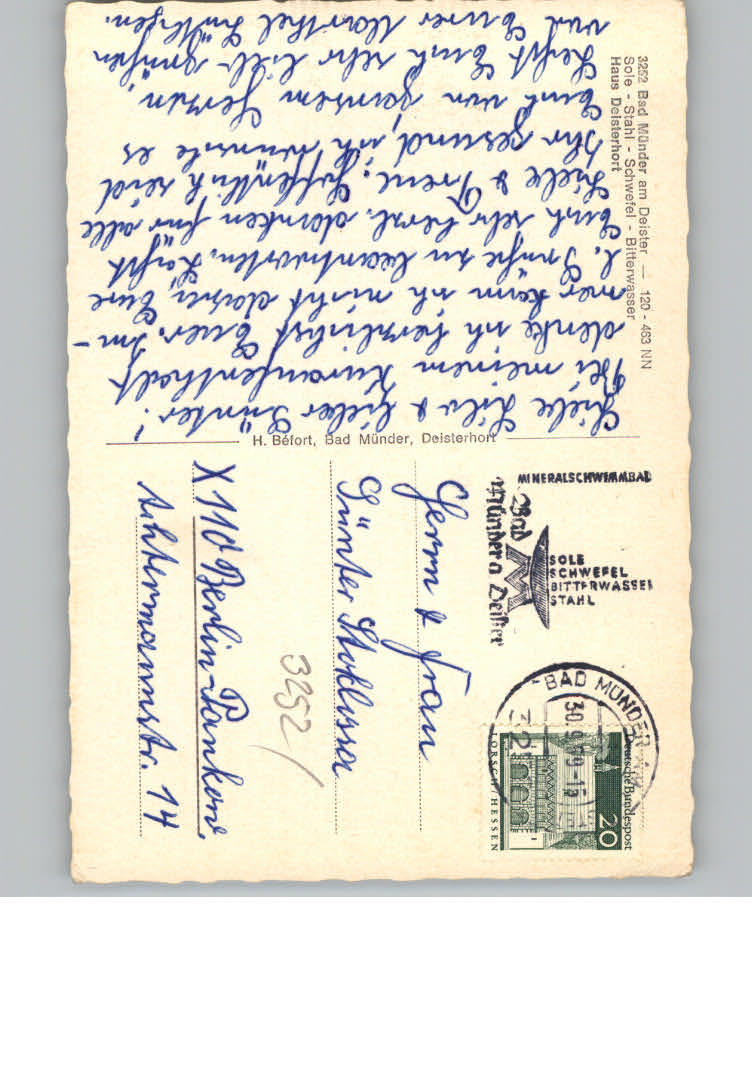 3252 Bad Münder am Deister — 120 - 463 NN
Sole - Stahl - Schwefel - Bitterwasser
Haus Deisterhort
Liebe Lilo & lieber Günter!
Bei meinem Kuraufenthalt
denke ich herzlichst Euer. Im-
mer kam ich nicht dazu Eure
l. Grüße zu beantworten. Laßt
Euch sehr herzl. danken für alle
Liebe & Treue. Hoffentlich seid
Ihr gesund, ich wünsche es
Euch von ganzem Herzen.
Seid Euch sehr lieb. gegrüßt
von Eurer
H. Béfort, Bad Münder, Deisterhort
MINERALSCHWIMMBAD
Bad
Münder a Deister
SOLE
SCHWEFEL
BITTERWASSER
STAHL
BAD MÜNDER
Deutsche Bundespost
20
LORSCH/HESSEN
Herrn & Frau
Günter
3252
X 110 Berlin-Pankow
Achtermannstr. 14